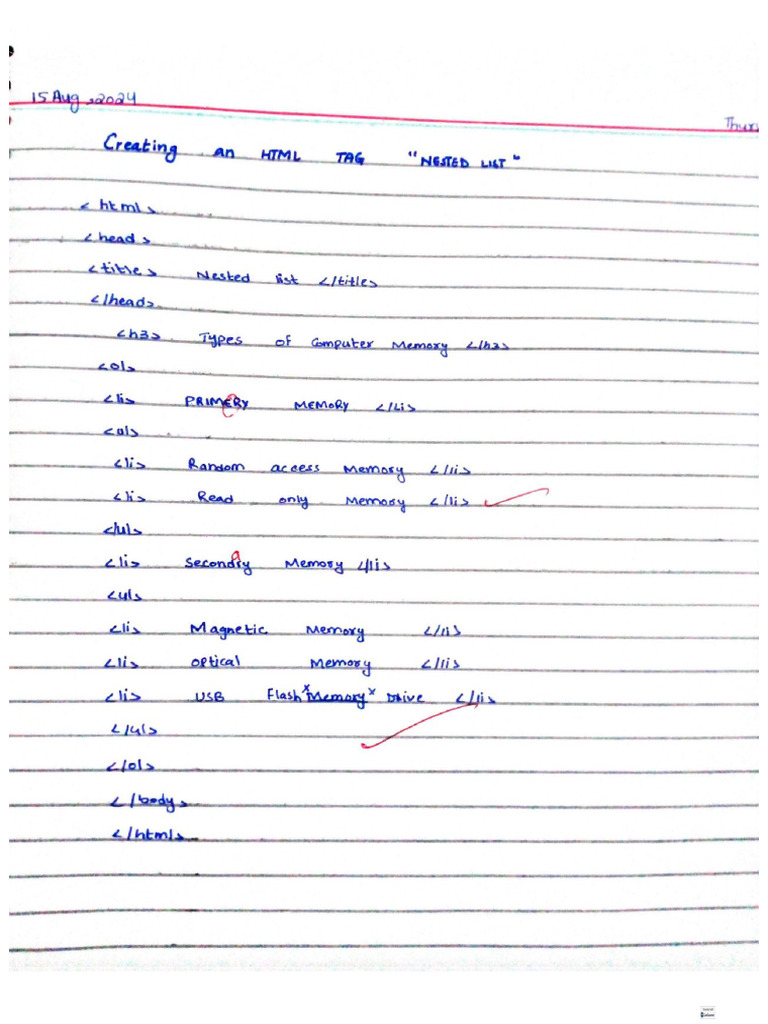 15 Aug, 2024
Thurs
Creating an HTML TAG "NESTED LIST"
<html>
<head>
<title> Nested list </title>
</head>
<h3> Types of Computer Memory </h3>
<ol>
<li> PRIMERY MEMORY </li>
<ul>
<li> Random access Memory </li>
<li> Read only Memory </li>
</ul>
<li> Secondary Memory </li>
<ul>
<li> Magnetic Memory </li>
<li> optical Memory </li>
<li> USB Flash Memory Drive </li>
</ul>
</ol>
</body>
</html>